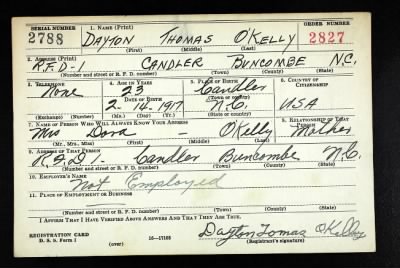 SERIAL NUMBER 1. NAME (Print) ORDER NUMBER
2788 DAYTON THOMAS O'KELLY 2827
(First) (Middle) (Last)
2. ADDRESS (Print)
R.F.D-1 CANDLER BUNCOMBE N.C.
(Number and street or R. F. D. number) (Town) (County) (State)
3. TELEPHONE 4. AGE IN YEARS 5. PLACE OF BIRTH 6. COUNTRY OF CITIZENSHIP
None 23 Candler
DATE OF BIRTH (Town or county)
2-14-1917 N.C. USA
(Exchange) (Number) (Mo.) (Day) (Yr.) (State or country)
7. NAME OF PERSON WHO WILL ALWAYS KNOW YOUR ADDRESS 8. RELATIONSHIP OF THAT PERSON
Mrs Dora - O'Kelly Mother
(Mr., Mrs., Miss) (First) (Middle) (Last)
9. ADDRESS OF THAT PERSON
R.F.D 1- Candler Buncombe N.C.
(Number and street or R. F. D. number) (Town) (County) (State)
10. EMPLOYER'S NAME
Not Employed
11. PLACE OF EMPLOYMENT OR BUSINESS
(Number and street or R. F. D. number) (Town) (County) (State)
I AFFIRM THAT I HAVE VERIFIED ABOVE ANSWERS AND THAT THEY ARE TRUE.
REGISTRATION CARD Dayton Tomas O'Kelley
D. S. S. Form 1 (over) 16-17105 (Registrant's signature)